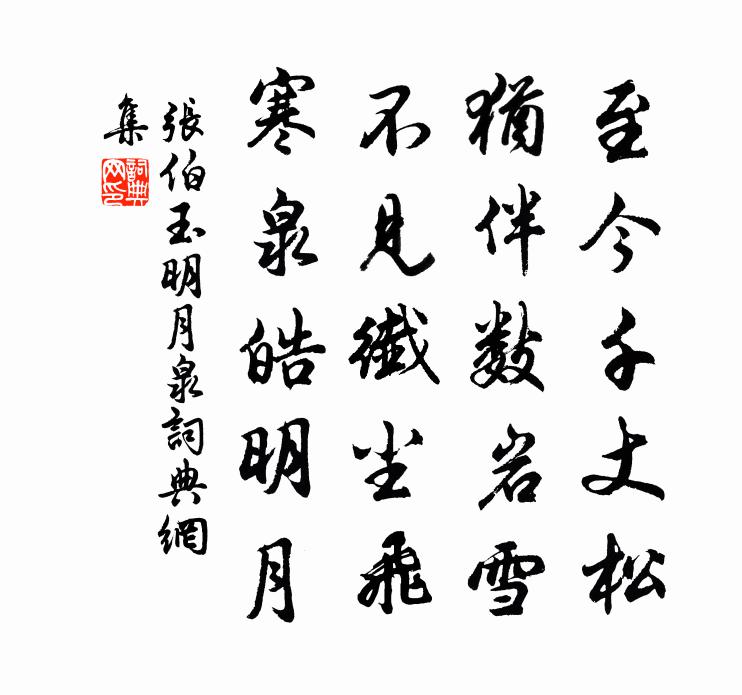 至今千丈松
猶伴數岩雪
不見纖尘飛
寒泉皓明月
張伯玉明月泉詞典網
集
詞典
网印